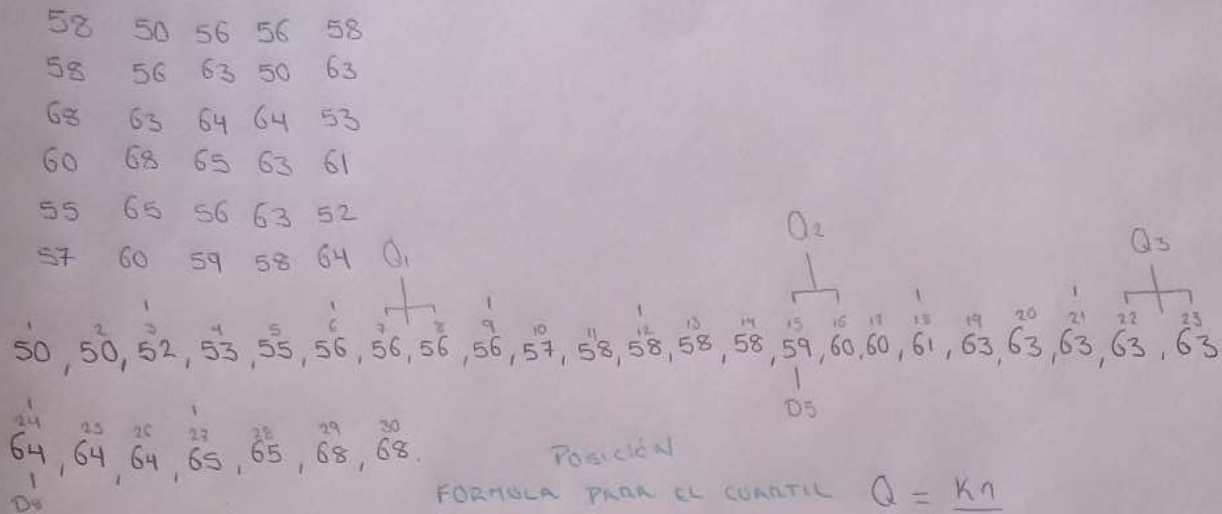 58 50 56 56 58
58 56 63 50 63
68 63 64 64 53
60 68 65 63 61
55 65 56 63 52
57 60 59 58 64
Q1 Q2 Q3
1 2 3 4 5 6 7 8 9 10 11 12 13 14 15 16 17 18 19 20 21 22 23
50, 50, 52, 53, 55, 56, 56, 56, 56, 57, 58, 58, 58, 58, 59, 60, 60, 61, 63, 63, 63, 63, 63
D5
24 25 26 27 28 29 30
64, 64, 64, 65, 65, 68, 68.
D8
POSICIÓN
FORMULA PARA EL CUARTIL Q = Kn